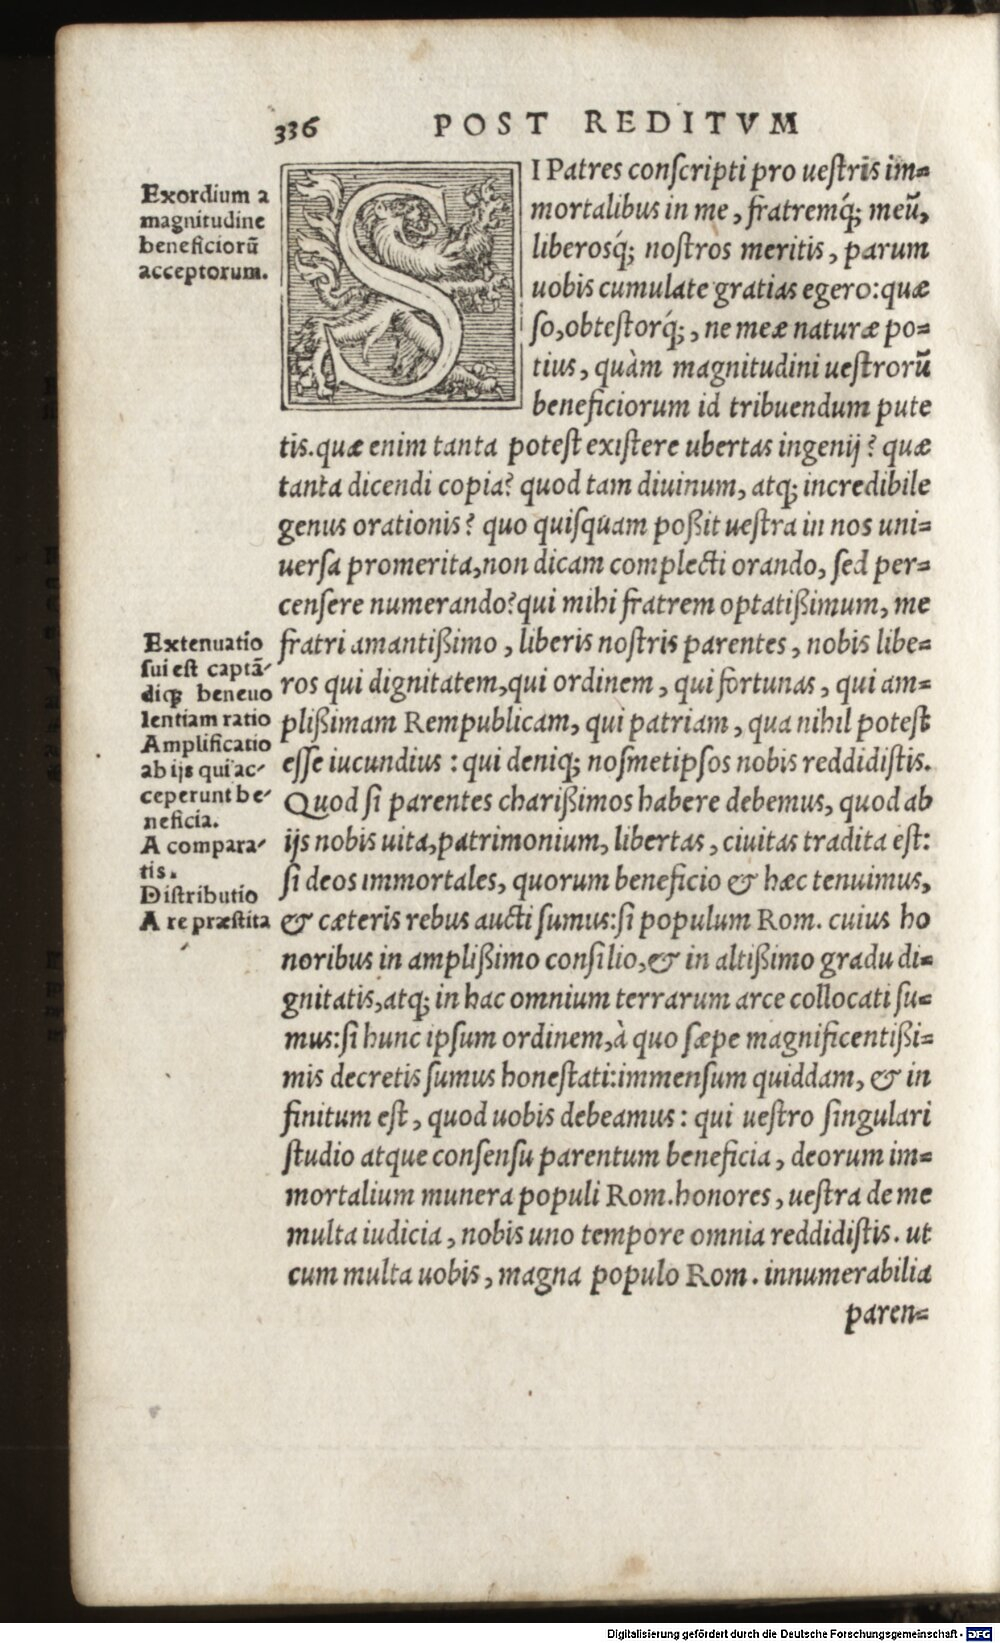 336 POST REDITVM
Exordium a
magnitudine
beneficiorū
acceptorum.
SI Patres conſcripti pro ueſtris im=
mortalibus in me, fratremq́; meū,
liberosq́; noſtros meritis, parum
uobis cumulate gratias egero: quæ
ſo, obteſtorq́;, ne meæ naturæ po=
tius, quàm magnitudini ueſtrorū
beneficiorum id tribuendum pute
tis. quæ enim tanta poteſt exiſtere ubertas ingenij? quæ
tanta dicendi copia? quod tam diuinum, atq; incredibile
genus orationis? quo quiſquam poßit ueſtra in nos uni=
uerſa promerita, non dicam complecti orando, ſed per=
cenſere numerando? qui mihi fratrem optatißimum, me
fratri amantißimo, liberis noſtris parentes, nobis libe=
ros qui dignitatem, qui ordinem, qui fortunas, qui am=
plißimam Rempublicam, qui patriam, qua nihil poteſt
eſſe iucundius: qui deniq; noſmetipſos nobis reddidiſtis.
Quod ſi parentes charißimos habere debemus, quod ab
ijs nobis uita, patrimonium, libertas, ciuitas tradita eſt:
ſi deos immortales, quorum beneficio & hæc tenuimus,
& cæteris rebus aucti ſumus: ſi populum Rom. cuius ho
noribus in amplißimo conſilio, & in altißimo gradu di=
gnitatis, atq; in hac omnium terrarum arce collocati ſu=
mus: ſi hunc ipſum ordinem, à quo ſæpe magnificentißi=
mis decretis ſumus honeſtati: immenſum quiddam, & in
finitum eſt, quod uobis debeamus: qui ueſtro ſingulari
ſtudio atque conſenſu parentum beneficia, deorum im=
mortalium munera populi Rom. honores, ueſtra de me
multa iudicia, nobis uno tempore omnia reddidiſtis. ut
cum multa uobis, magna populo Rom. innumerabilia
paren=
Extenuatio
sui est captā-
diq; beneuo
lentiam ratio
Amplificatio
ab ijs qui ac-
ceperunt be-
neficia.
A compara-
tis.
Distributio
A re præstita
Digitalisierung gefördert durch die Deutsche Forschungsgemeinschaft - DFG